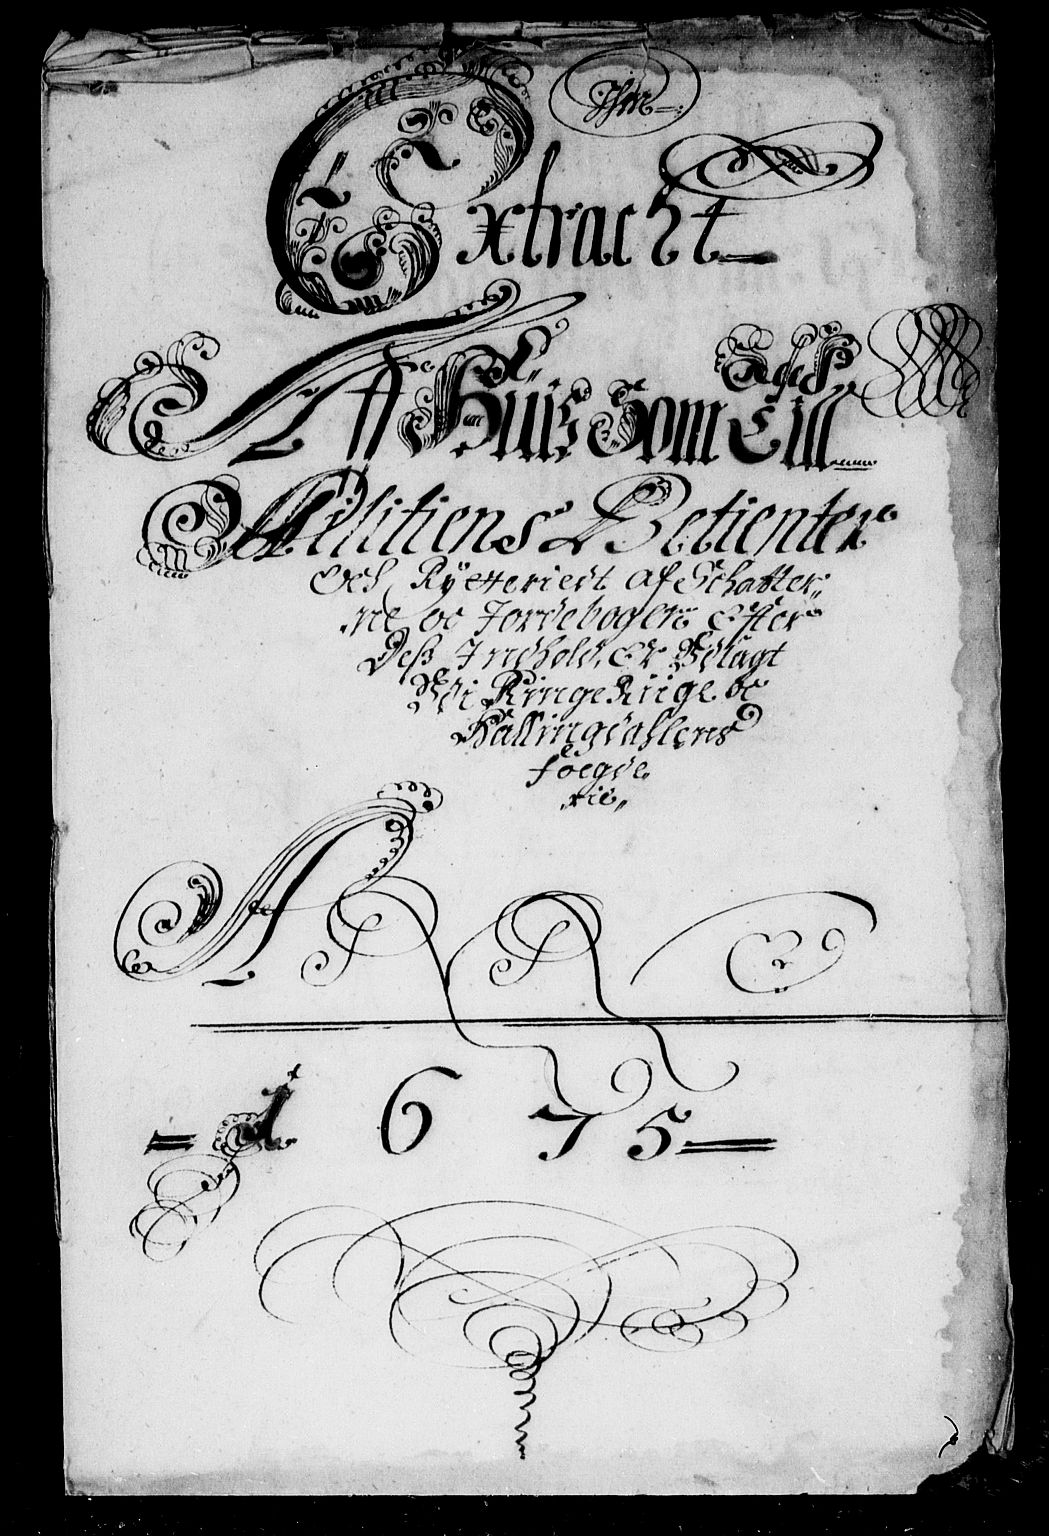 Extracht
Aff Huis Som Till
Militiens Betienter
Och Rytteriedt af Schatter
ne oc Jordebogen Efter
Deß Indhold, Er Udlagt
Udi RingeRiige oc
Hallingdahlens
foegde
rie
A
1675